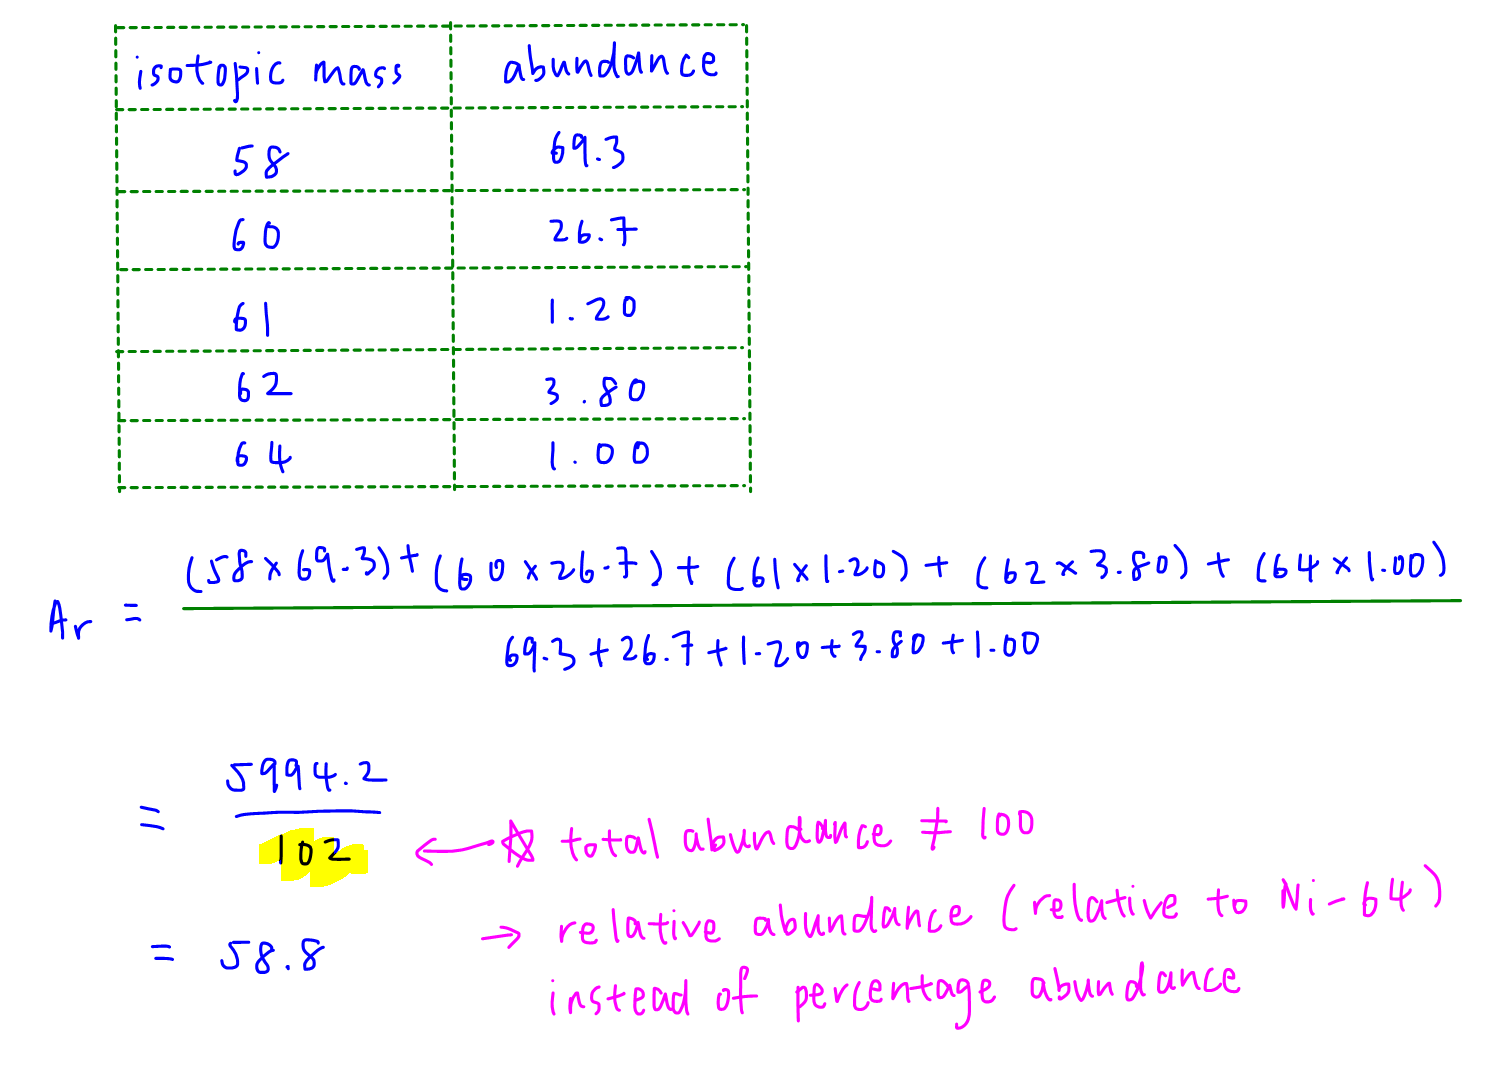 isotopic mass abundance
58 69.3
60 26.7
61 1.20
62 3.80
64 1.00
(58 × 69.3) + (60 × 26.7) + (61 × 1.20) + (62 × 3.80) + (64 × 1.00)
Ar =
69.3 + 26.7 + 1.20 + 3.80 + 1.00
5994.2
=
102 ← ☆ total abundance ≠ 100
→ relative abundance (relative to Ni-64)
= 58.8
instead of percentage abundance